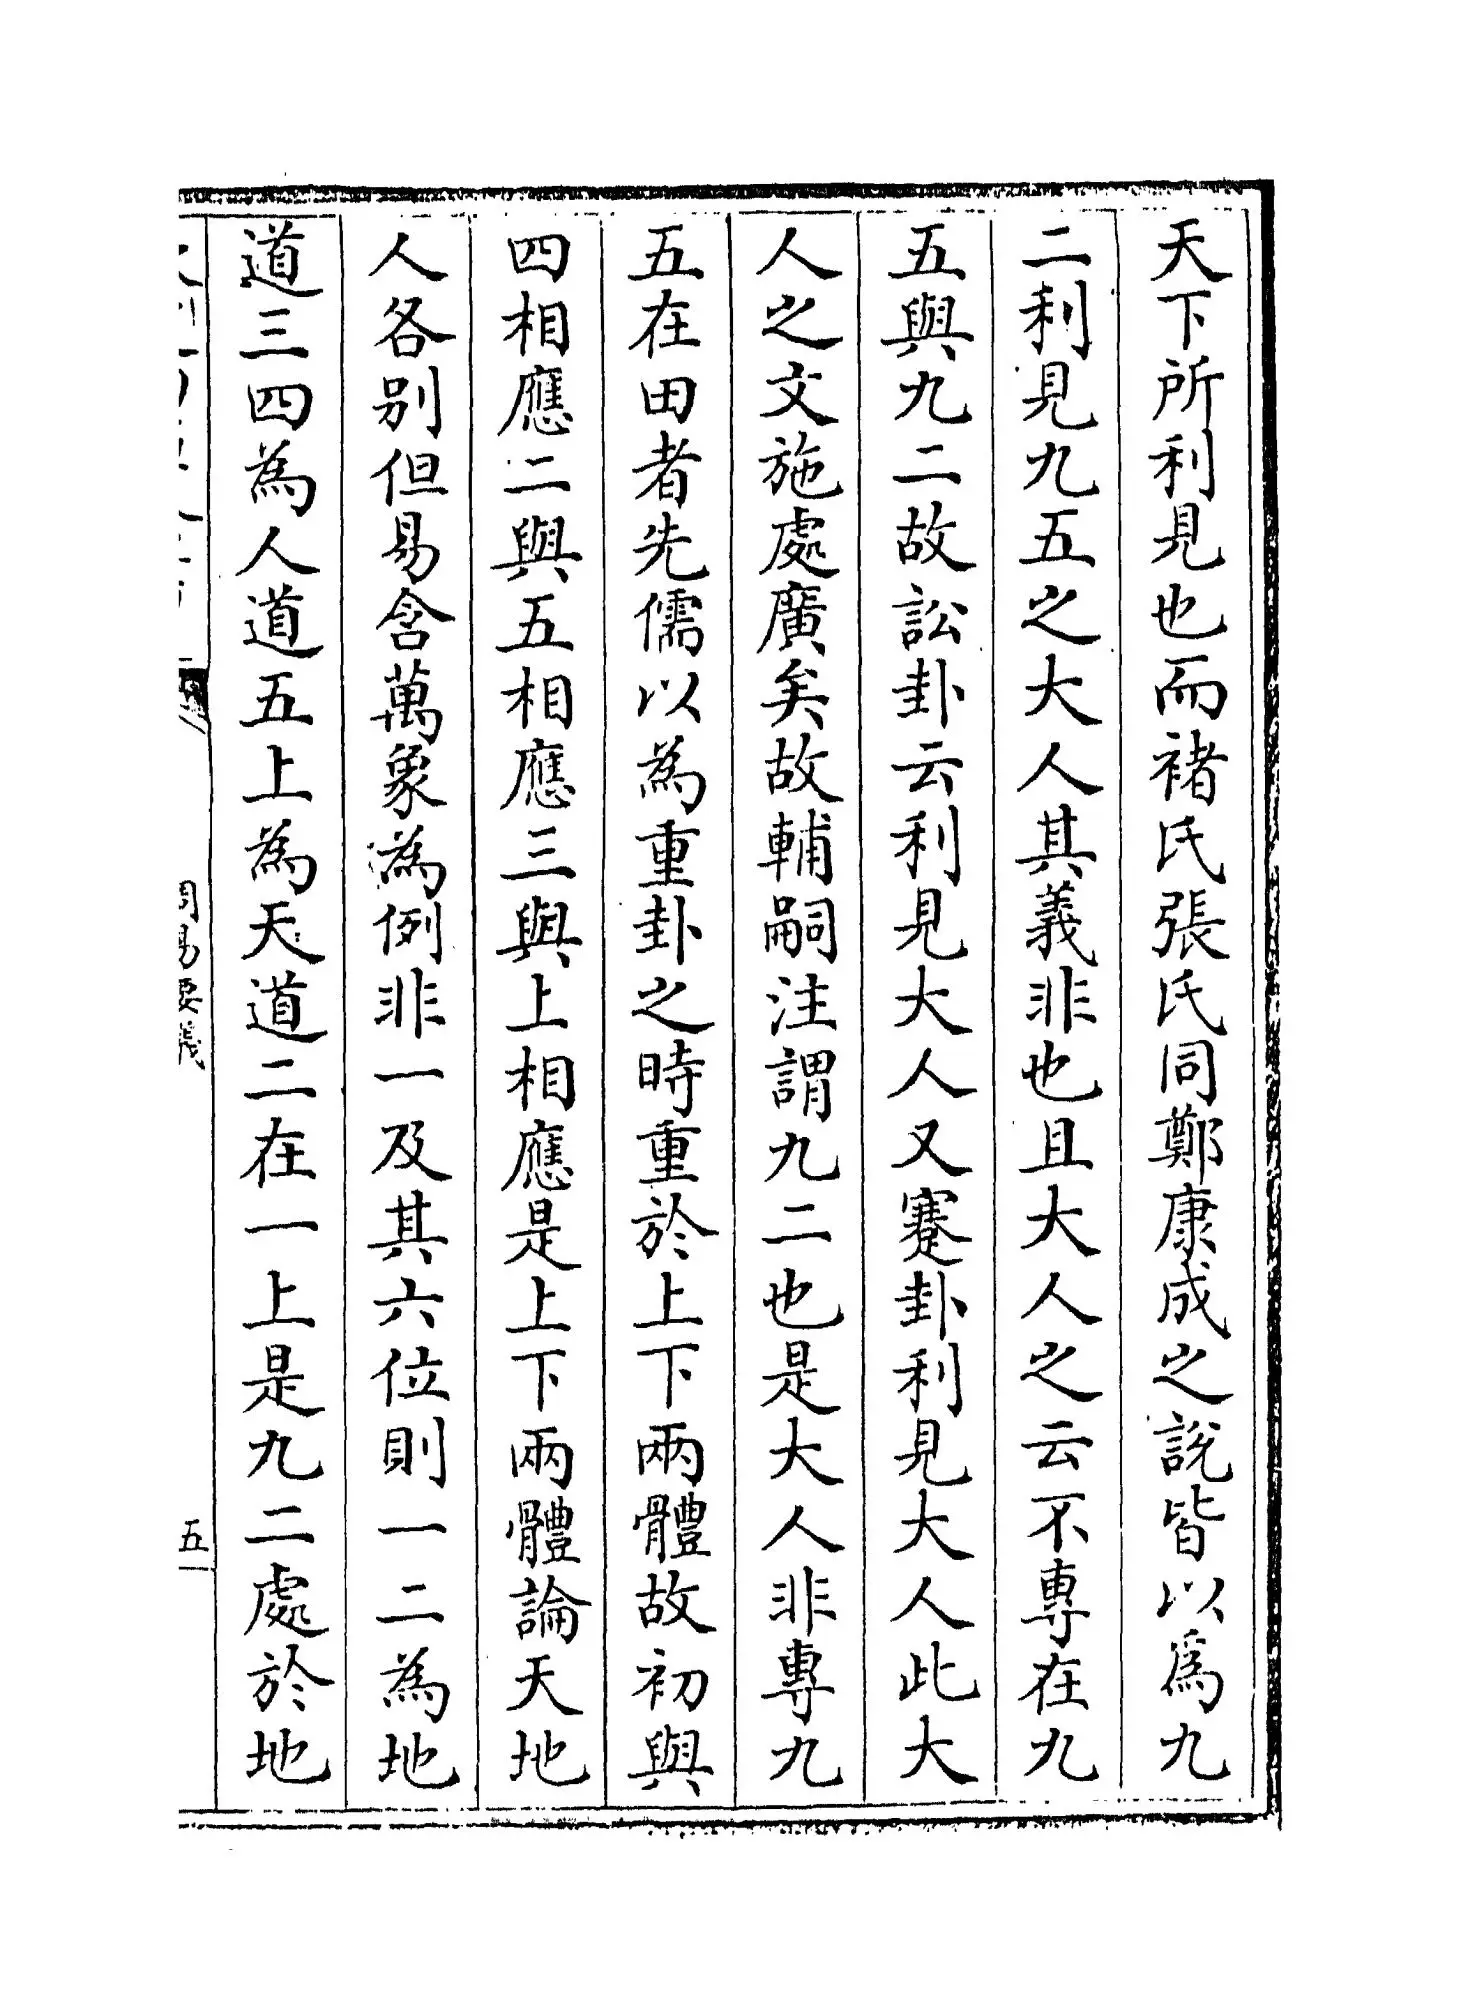 天下所利見也而褚氏張氏同鄭康成之說皆以爲九
二利見九五之大人其義非也且大人之云不專在九
五與九二故訟卦云利見大人又蹇卦利見大人此大
人之文施處廣矣故輔嗣注謂九二也是大人非專九
五在田者先儒以為重卦之時重於上下兩體故初與
四相應二與五相應三與上相應是上下兩體論天地
人各别但易含萬象為例非一及其六位則一二為地
道三四為人道五上為天道二在一上是九二處於地
周易要義
五